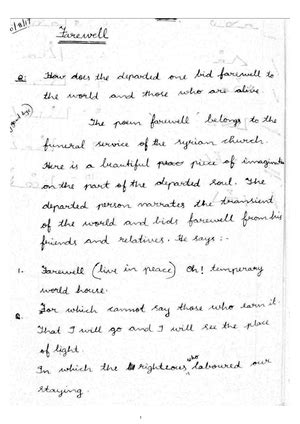 Farewell
Q. How does the departed one bid farewell to
the world and those who are alive.
The poem 'farewell' belongs to the
funeral service of the syrian church.
Here is a beautiful piece of imagination
on the part of the departed soul. The
departed person narrates the transient
of the world and bids farewell from his
friends and relatives. He says :-
1. Farewell (live in peace) Oh! temperary
world house.
For which cannot say those who earn it.
2. That I will go and I will see the place
of light.
In which the righteous who laboured our
staying.